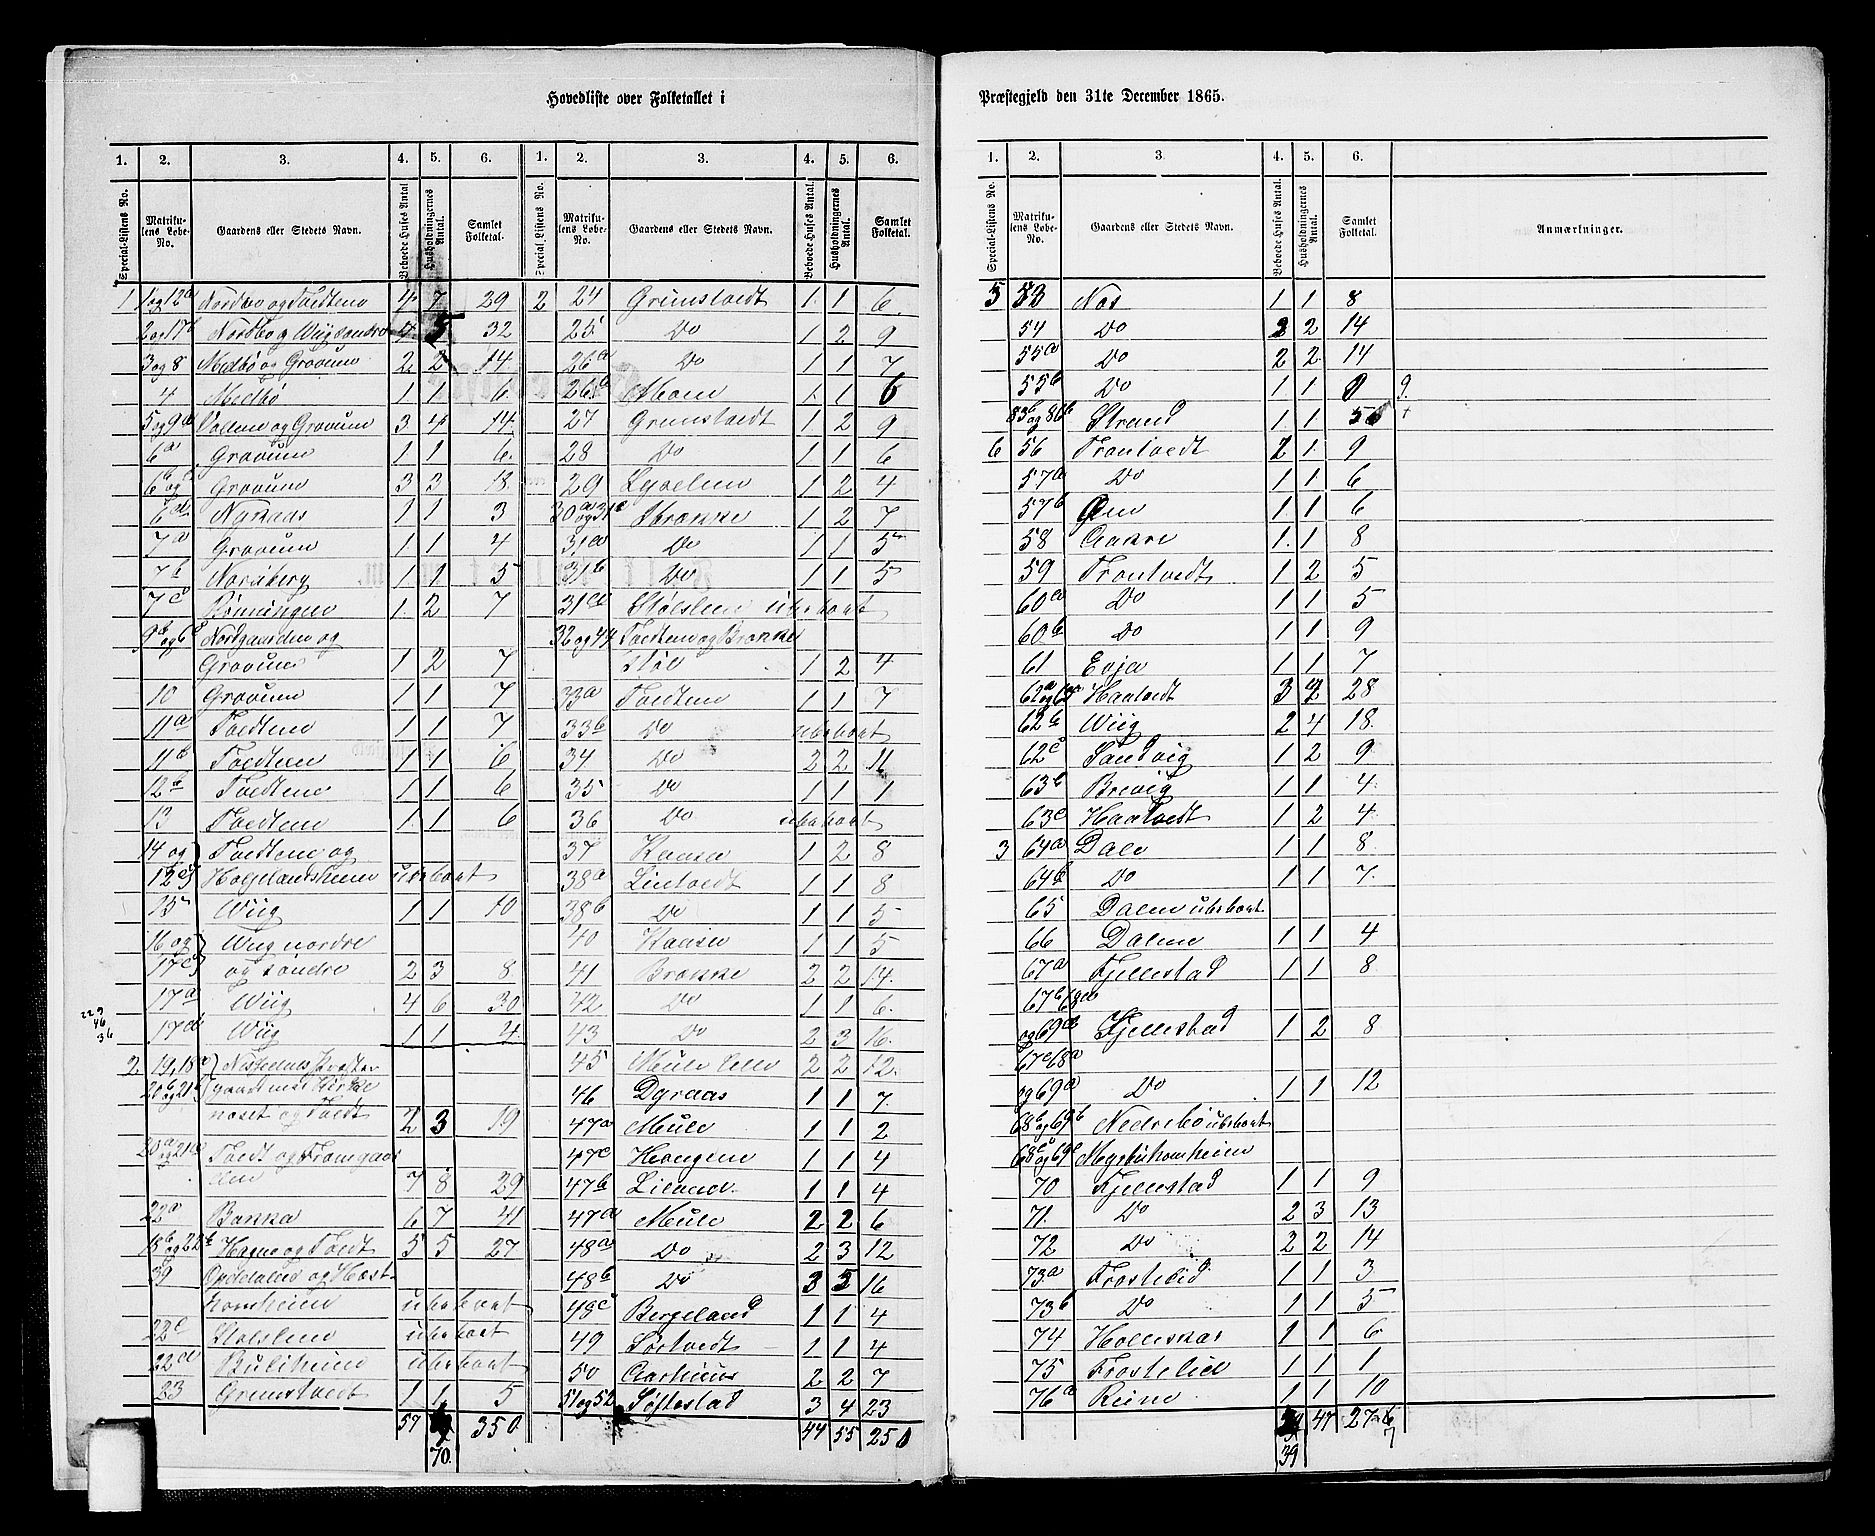 Hovedliste over Folketallet i
1. 2. 3. 4. 5. 6. 1. 2. 3. 4. 5. 6.
Special-Listens No. Matrikulens Løbe-No. Gaardens eller Stedets Navn. Beboede Huses Antal. Husholdningernes Antal. Samlet Folketal. Special-Listens No. Matrikulens Løbe-No. Gaardens eller Stedets Navn. Beboede Huses Antal. Husholdningernes Antal. Samlet Folketal.
1 1 og 12a Nordbø og Tvedtene 4 7 29
2 og 17b Nordbø og Wiig søndre 4 5 32
3 og 8 Medbø og Gravum 2 2 14
4 Medbø 1 1 6
5 og 9a Vollen og Gravum 3 4 14
6a Gravum 1 1 6
Gravum 3 3 18
6d 1 1 3
7a Gravum 1 1 4
7b Norsberg 1 1 5
7c Rønningen 1 2 7
Nordgaarden og
Gravum 1 2 7
10 Gravum 1 1 7
11a Tvedtene 1 1 7
11b Tvedtene 1 1 6
12b Tvedtene 1 1 6
13 Tvedtene 1 1 6
14 og Tvedtene og
12c ubeboet
15 Wiig 1 1 10
16 og Wiig nordre
17c og søndre 2 3 8
17a Wiig 4 6 30
17d Wiig 1 1 4
2 19, 18a
20b og 21b
næset og Tvedt 2 3 19
20a og 21a Tvedt og
7 8 29
22a Bakka 6 7 41
18b og 22b Hagen og Tvedt 5 5 27
39
ubeboet
22c Stølslien ubeboet
22d ubeboet
23 Grimstvedt 1 1 5
57 70. 350
2 24 Grimstvedt 1 1 6
25 Do 1 2 9
26a Do 1 1 7
26b Moen 1 1 6
27 Grimstvedt 1 2 9
28 Do 1 1 6
29 1 2 4
30a og 31c Brokke 1 2 7
31a Do 1 1 5
31b Do 1 1 5
31d Stølslien ubeboet
32 og 44 Tvedtene og Brokke
støl 1 2 4
33a Tvedtene 1 1 7
33b Do ubeboet
34 Do 2 2 11
35 Do 1 1 1
36 Do ubeboet
37 Kaasen 1 2 8
38a Lintvedt 1 1 8
38b Do 1 1 5
40 Kaasen 1 1 5
41 Brokke 2 2 14
42 Do 1 1 6
43 Do 2 3 16
45 2 2 12
46 Dyraas 1 1 7
47a Mule 1 1 2
47c Haugen 1 1 4
47b Liland 1 1 4
47d Mule 2 2 6
48a Do 2 3 12
48b Do 3 5 16
48c Bergeland 1 1 4
49 Sørtvedt 1 1 4
50 2 2 7
51 og 52 Søftestad 3 4 23
44 55 250
Præstegjeld den 31te December 1865.
1. 2. 3. 4. 5. 6.
Special-Listens No. Matrikulens Løbe-No. Gaardens eller Stedets Navn. Beboede Huses Antal. Husholdningernes Antal. Samlet Folketal. Anmærkninger.
53 Næs 1 1 8
54 Do 2 2 14
55a Do 2 2 14
55b Do 1 1 9.
83b og 86b Strand 1 1 5
6 56 Trontvedt 2 1 9
57a Do 1 1 6
57b Øen 1 1 6
58 Aakre 1 1 8
59 Trontvedt 1 2 5
60a Do 1 1 5
60b Do 1 1 9
61 Evja 1 1 7
Haatvedt 3 4 28
62b Wiig 2 4 18
62c Sandvig 1 2 9
63b Brevig 1 1 4
63c Haatvedt 1 2 4
3 64a Dale 1 1 8
64b Do 1 1 7
65 Dalen ubeboet
66 Dalene 1 1 4
67a Kjellestad 1 1 8
67b
Kjellestad 1 2 8
67c 68a
og 69a Do 1 1 12
68b og 69b Nedrebø ubeboet
68c og 69c
70 Kjellestad 1 1 9
71 Do 2 3 13
72 Do 2 2 14
73a Frostelid 1 1 3
73b Do 1 1 5
74 Holleskar 1 1 6
75 Frostelid 1 1 1
76a Reine 1 1 10
39 47 276